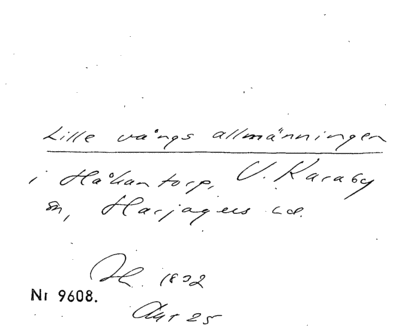 Lille vångs allmänningen
i Håkantorp, V. Karaby
sn, Harjagers hd.
1832
Nr 9608.
Akt 25